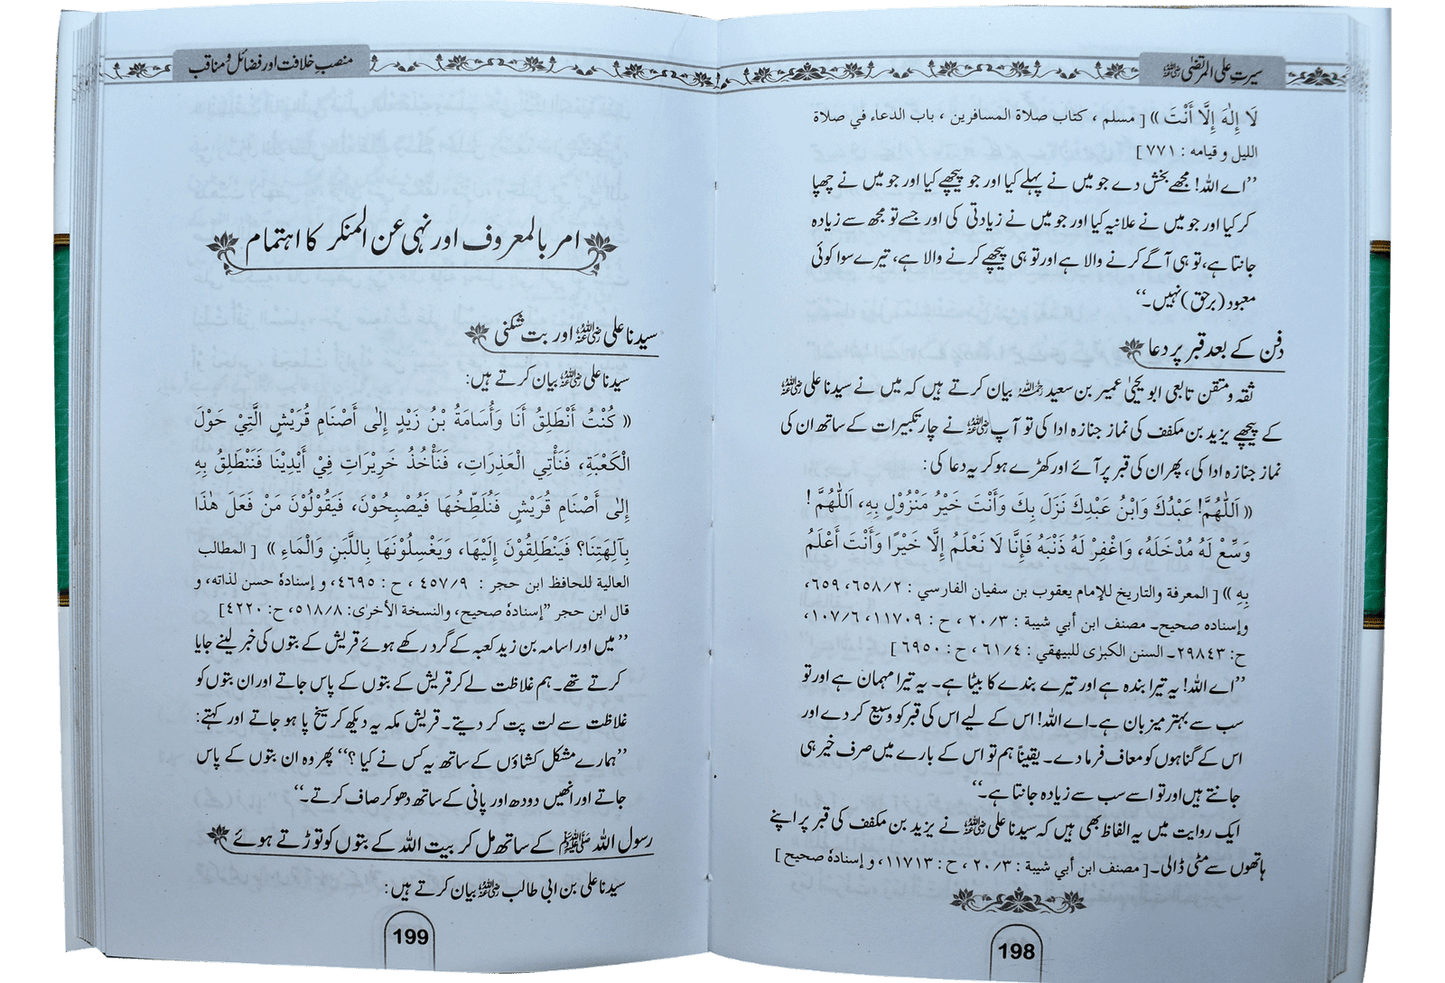 سیرتِ علی المرتضیٰ رضی اللہ عنہ
لَا إِلٰهَ إِلَّا أَنْتَ » [ مسلم ، كتاب صلاة المسافرين ، باب الدعاء في صلاة
الليل و قيامه : ٧٧١ ]
’’اے اللہ! مجھے بخش دے جو میں نے پہلے کیا اور جو پیچھے کیا اور جو میں نے چھپا
کر کیا اور جو میں نے علانیہ کیا اور جو میں نے زیادتی کی اور جسے تو مجھ سے زیادہ
جانتا ہے، تو ہی آگے کرنے والا ہے اور تو ہی پیچھے کرنے والا ہے، تیرے سوا کوئی
معبود (برحق) نہیں۔‘‘
دفن کے بعد قبر پر دعا
ثقہ و متقن تابعی ابو یحییٰ عمیر بن سعید رحمہ اللہ بیان کرتے ہیں کہ میں نے سیدنا علی رضی اللہ عنہ
کے پیچھے یزید بن مکفف کی نماز جنازہ ادا کی تو آپ رضی اللہ عنہ نے چار تکبیرات کے ساتھ ان کی
نماز جنازہ ادا کی، پھر ان کی قبر پر آئے اور کھڑے ہو کر یہ دعا کی:
« اَللّٰهُمَّ! عَبْدُكَ وَابْنُ عَبْدِكَ نَزَلَ بِكَ وَأَنْتَ خَيْرُ مَنْزُوْلٍ بِهِ، اَللّٰهُمَّ !
وَسِّعْ لَهُ مُدْخَلَهُ، وَاغْفِرْ لَهُ ذَنْبَهُ فَإِنَّا لَا نَعْلَمُ إِلَّا خَيْرًا وَأَنْتَ أَعْلَمُ
بِهِ » [ المعرفة والتاريخ للإمام يعقوب بن سفيان الفارسي : ٦٥٨/٢، ٦٥٩،
وإسناده صحيح۔ مصنف ابن أبي شيبة : ٢٠/٣ ، ح : ١١٧٠٩، ١٠٧/٦،
ح: ٢٩٨٤٣۔ السنن الكبرٰى للبيهقي : ٦١/٤ ، ح : ٦٩٥٠ ]
’’اے اللہ! یہ تیرا بندہ ہے اور تیرے بندے کا بیٹا ہے۔ یہ تیرا مہمان ہے اور تو
سب سے بہتر میزبان ہے۔ اے اللہ! اس کے لیے اس کی قبر کو وسیع کر دے اور
اس کے گناہوں کو معاف فرما دے۔ یقیناً ہم تو اس کے بارے میں صرف خیر ہی
جانتے ہیں اور تو اسے سب سے زیادہ جانتا ہے۔‘‘
ایک روایت میں یہ الفاظ بھی ہیں کہ سیدنا علی رضی اللہ عنہ نے یزید بن مکفف کی قبر پر اپنے
ہاتھوں سے مٹی ڈالی۔ [ مصنف ابن أبي شيبة : ٢٠/٣ ، ح : ١١٧١٣، و إسنادهٗ صحيح ]
198
منصبِ خلافت اور فضائل و مناقب
امر بالمعروف اور نہی عن المنکر کا اہتمام
سیدنا علی رضی اللہ عنہ اور بت شکنی
سیدنا علی رضی اللہ عنہ بیان کرتے ہیں:
« كُنْتُ أَنْطَلِقُ أَنَا وَأُسَامَةُ بْنُ زَيْدٍ إِلٰى أَصْنَامِ قُرَيْشٍ الَّتِيْ حَوْلَ
الْكَعْبَةِ، فَنَأْتِي الْعَذِرَاتِ، فَنَأْخُذُ خَرِيْرَاتٍ فِيْ أَيْدِيْنَا فَنَنْطَلِقُ بِهِ
إِلٰى أَصْنَامِ قُرَيْشٍ فَنُلَطِّخُهَا فَيُصْبِحُوْنَ، فَيَقُوْلُوْنَ مَنْ فَعَلَ هٰذَا
بِآلِهَتِنَا؟ فَيَنْطَلِقُوْنَ إِلَيْهَا، وَيَغْسِلُوْنَهَا بِاللَّبَنِ وَالْمَاءِ » [ المطالب
العالية للحافظ ابن حجر : ٤٥٧/٩ ، ح : ٤٦٩٥، و إسنادهٗ حسن لذاته، و
قال ابن حجر "إسنادهٗ صحيح، والنسخة الأخرى: ٥١٨/٨، ح: ٤٢٢٠]
’’میں اور اسامہ بن زید کعبہ کے گرد رکھے ہوئے قریش کے بتوں کی خبر لینے جایا
کرتے تھے۔ ہم غلاظت لے کر قریش کے بتوں کے پاس جاتے اور ان بتوں کو
غلاظت سے لت پت کر دیتے۔ قریش مکہ یہ دیکھ کر سیخ پا ہو جاتے اور کہتے:
’’ہمارے مشکل کشاؤں کے ساتھ یہ کس نے کیا ؟‘‘ پھر وہ ان بتوں کے پاس
جاتے اور انھیں دودھ اور پانی کے ساتھ دھو کر صاف کرتے۔‘‘
رسول اللہ ﷺ کے ساتھ مل کر بیت اللہ کے بتوں کو توڑتے ہوئے
سیدنا علی بن ابی طالب رضی اللہ عنہ بیان کرتے ہیں:
199